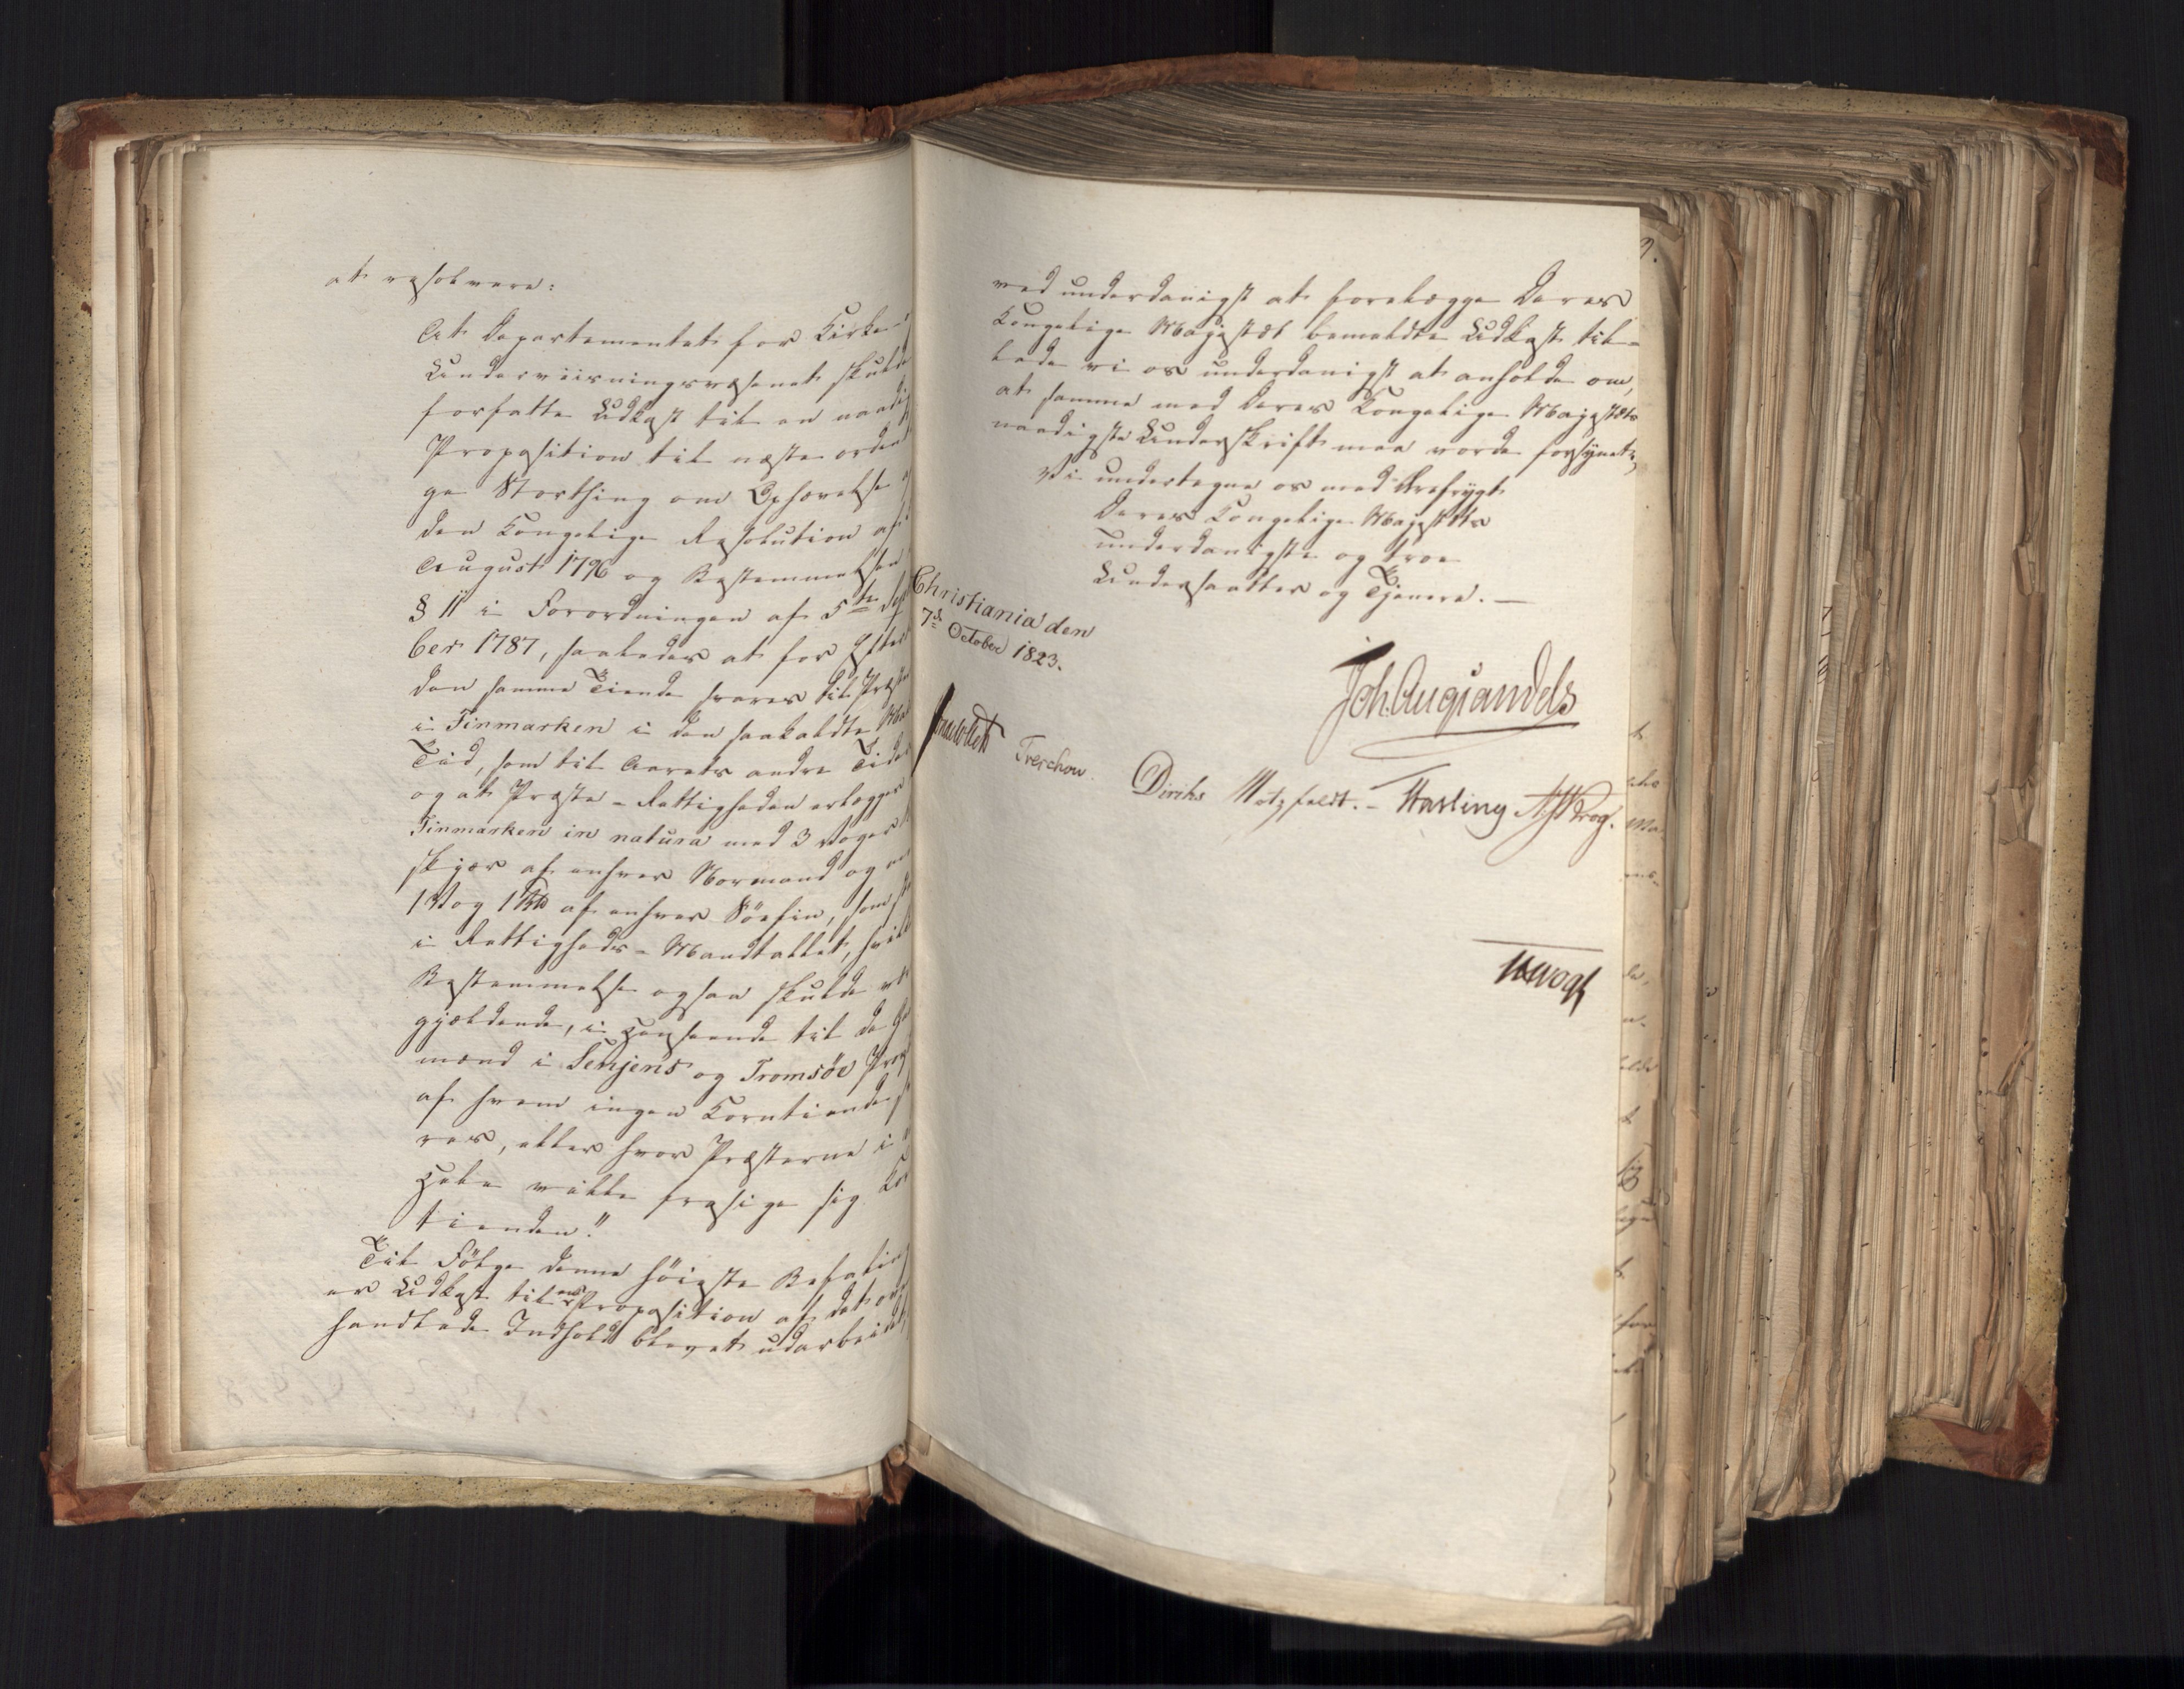 at resolvere:
At Departementet for Kirke-
Underviisningsvæsenet skulde
forfatte Udkast til en naadig
Proposition til næste orden
ge Storthing om Ophævelse
den Kongelige Resolution af
August 1796 og Bestemmelsen
§ 11 i Forordningen af 5te Sep
ber 1787, saaledes at for Efter
den samme Tiende svares til Præst
i Finmarken i den saakaldte
Tid, som til Aarets andre Tider
og at Præste-Rettigheden erlægges
Finmarken in natura med 3 Voger
skjær af enhver Normand og
1 Vog 1 af enhver Söefin, som
i Rettigheds-Mandtallet, hvil
Bestemmelse ogsaa skulde
gjældende, i Henseende til de
mænd i Senjens og Tromsöe
af hvem ingen Korntiende
res, eller hvor Præsterne i
Hele ville frasige sig Kor
tienden."
Til Fölge denne höieste Befaling
er Udkast til en Proposition af det
handlede Indhold blevet udarbeidet,
ved underdanigst at forelægge Deres
Kongelige Majestæt bemeldte Udkast til-
lade vi os underdanigst at anholde om,
at samme med Deres Kongelige Majestæts
naadigste Underskrift maa vorde forsynet,
Vi undertegne os med Ærefrygt
Deres Kongelige Majestæts
underdanigste og troe
Undersaatter og Tjenere. —
Christiania den
7de October 1823.
Joh. Aug. Sandels
Treschow.
Diriks Motzfeldt. - Fasting Krog.
Vogt